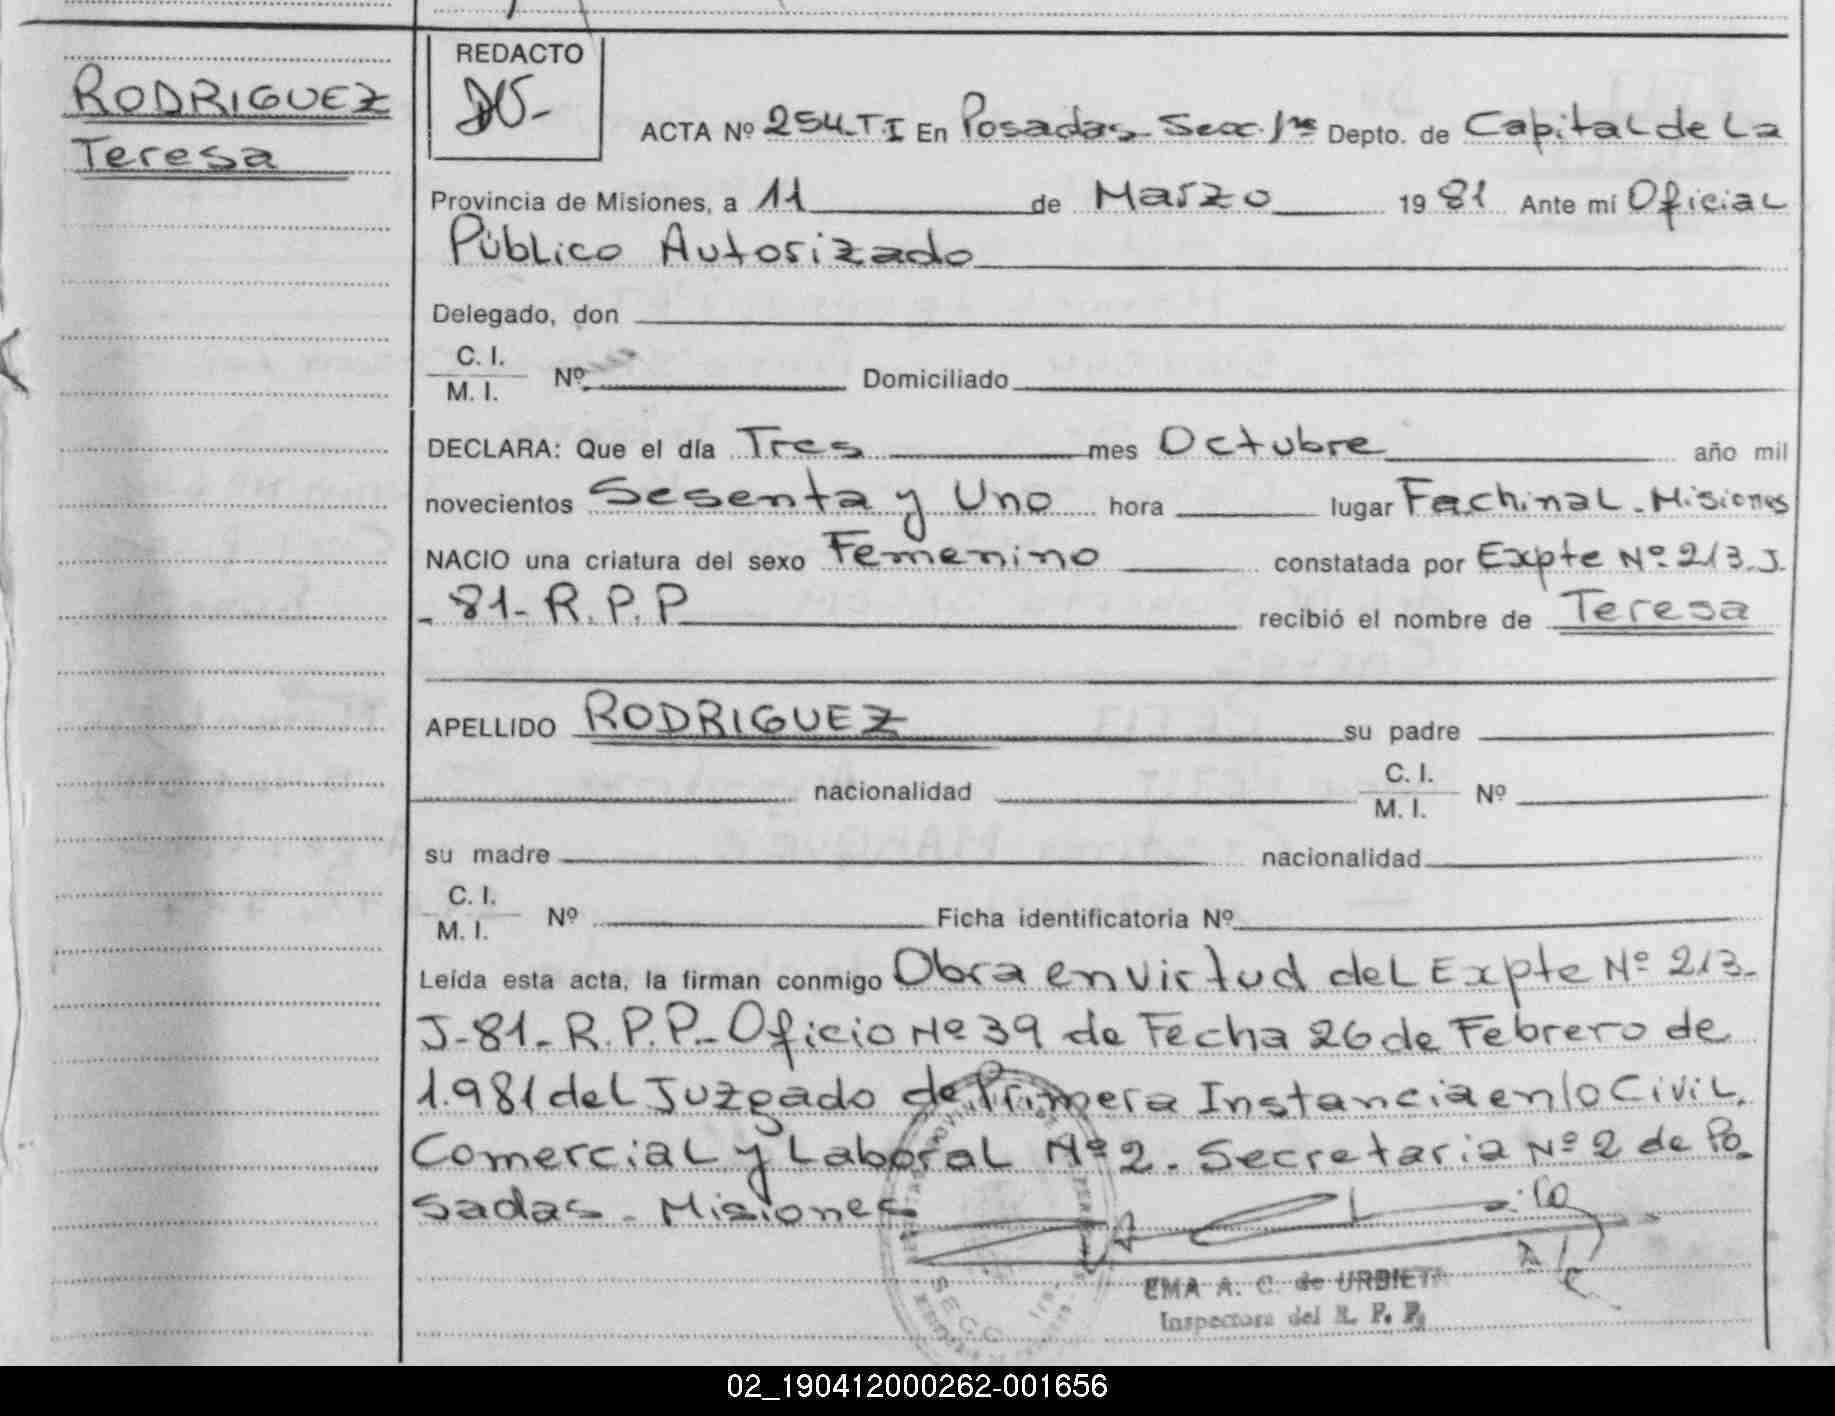 RODRIGUEZ
Teresa
REDACTO
ACTA Nº 254-T.I En Posadas Secc. 1ra Depto. de Capital de La
Provincia de Misiones, a 11 de Marzo 1981 Ante mí Oficial
Público Autorizado
Delegado, don
C. I.
M. I. Nº Domiciliado
DECLARA: Que el día Tres mes Octubre año mil
novecientos Sesenta y Uno hora lugar Fachinal - Misiones
NACIO una criatura del sexo Femenino constatada por Expte Nº 213-J.
- 81- R.P.P recibió el nombre de Teresa
APELLIDO RODRIGUEZ su padre
nacionalidad C. I.
M. I. Nº
su madre nacionalidad
C. I.
M. I. Nº Ficha identificatoria Nº
Leída esta acta, la firman conmigo Obra en virtud del Expte Nº 213-
J-81- R.P.P- Oficio Nº 39 de Fecha 26 de Febrero de
1.981 del Juzgado de Primera Instancia en lo Civil,
Comercial y Laboral Nº 2. Secretaria Nº 2 de Po-
sadas - Misiones
EMA A. C. de URBIETA
Inspectora del R. P. P.
02_190412000262-001656